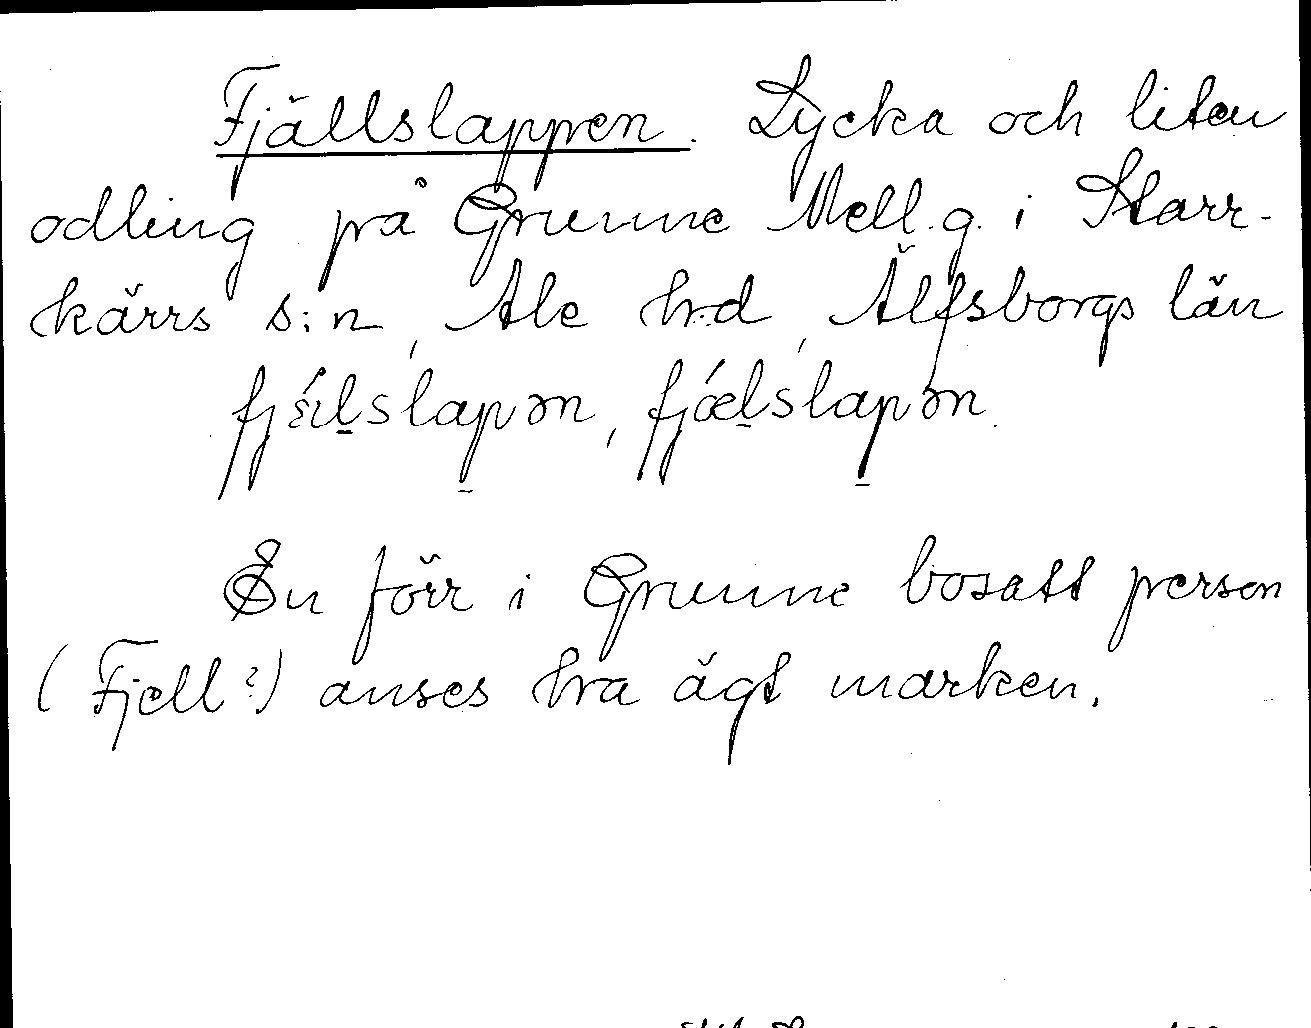 Fjällslappen. Lycka och liten
odling på Grunne Mell.g. i Starr-
kärrs s:n, Ale h:d, Älfsborgs län
fjǽlslapən, fjǽlslapən.
En förr i Grunne bosatt person
(Fjell?) anses hva ägt marken.